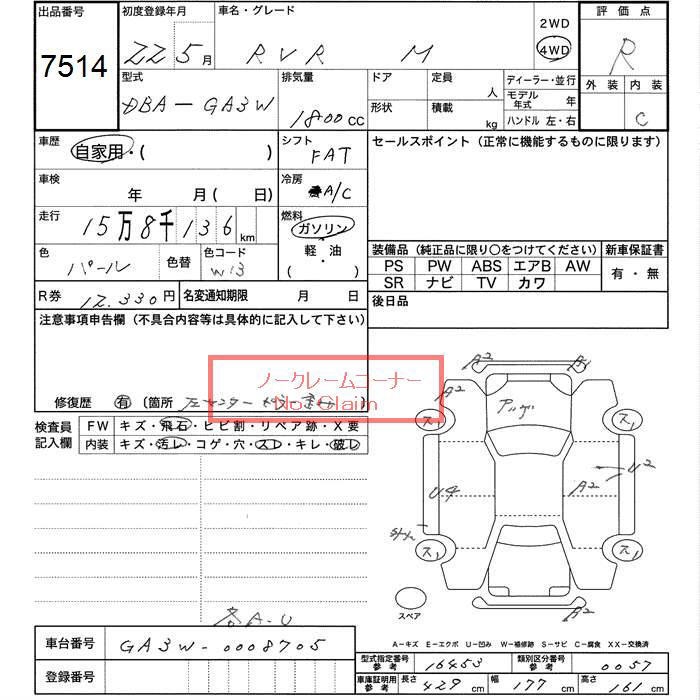 出品番号 初度登録年月 車名・グレード 2WD 評価点
7514 22 5月 RVR M 4WD R
型式 排気量 ドア 定員 人 ディーラー・並行 外装 内装
DBA-GA3W 1800cc 形状 積載 kg モデル年式 年 C
ハンドル 左・右
車歴 自家用・( ) シフト FAT セールスポイント(正常に機能するものに限ります)
車検 年 月( 日) 冷房 A/C
走行 15万8千136km 燃料 ガソリン
軽・油
( ・ )
色 パール 色替 色コード W13
装備品(純正品に限り○をつけてください) 新車保証書
PS PW ABS エアB AW 有・無
SR ナビ TV カワ
R券 12,330円 名変通知期限 月 日 後日品
注意事項申告欄(不具合内容等は具体的に記入して下さい)
ノークレームコーナー
No Claim
修復歴 有 (箇所 )
検査員記入欄 FW キズ・飛石・ヒビ割・リペア跡・X要
内装 キズ・汚レ・コゲ・穴・スレ・キレ・破レ
A2 A1
A2 アゲ
ス1 ス1
U4 A2 U2
ス1 ス1
A2
スペア
各A-U
A-キズ E-エクボ U-凹み W-補修跡 S-サビ C-腐食 XX-交換済
車台番号 GA3W-0008705
型式指定番号参考 16453 類別区分番号参考 0057
登録番号
車庫証明用参考 長さ 429cm 幅 177cm 高さ 161cm